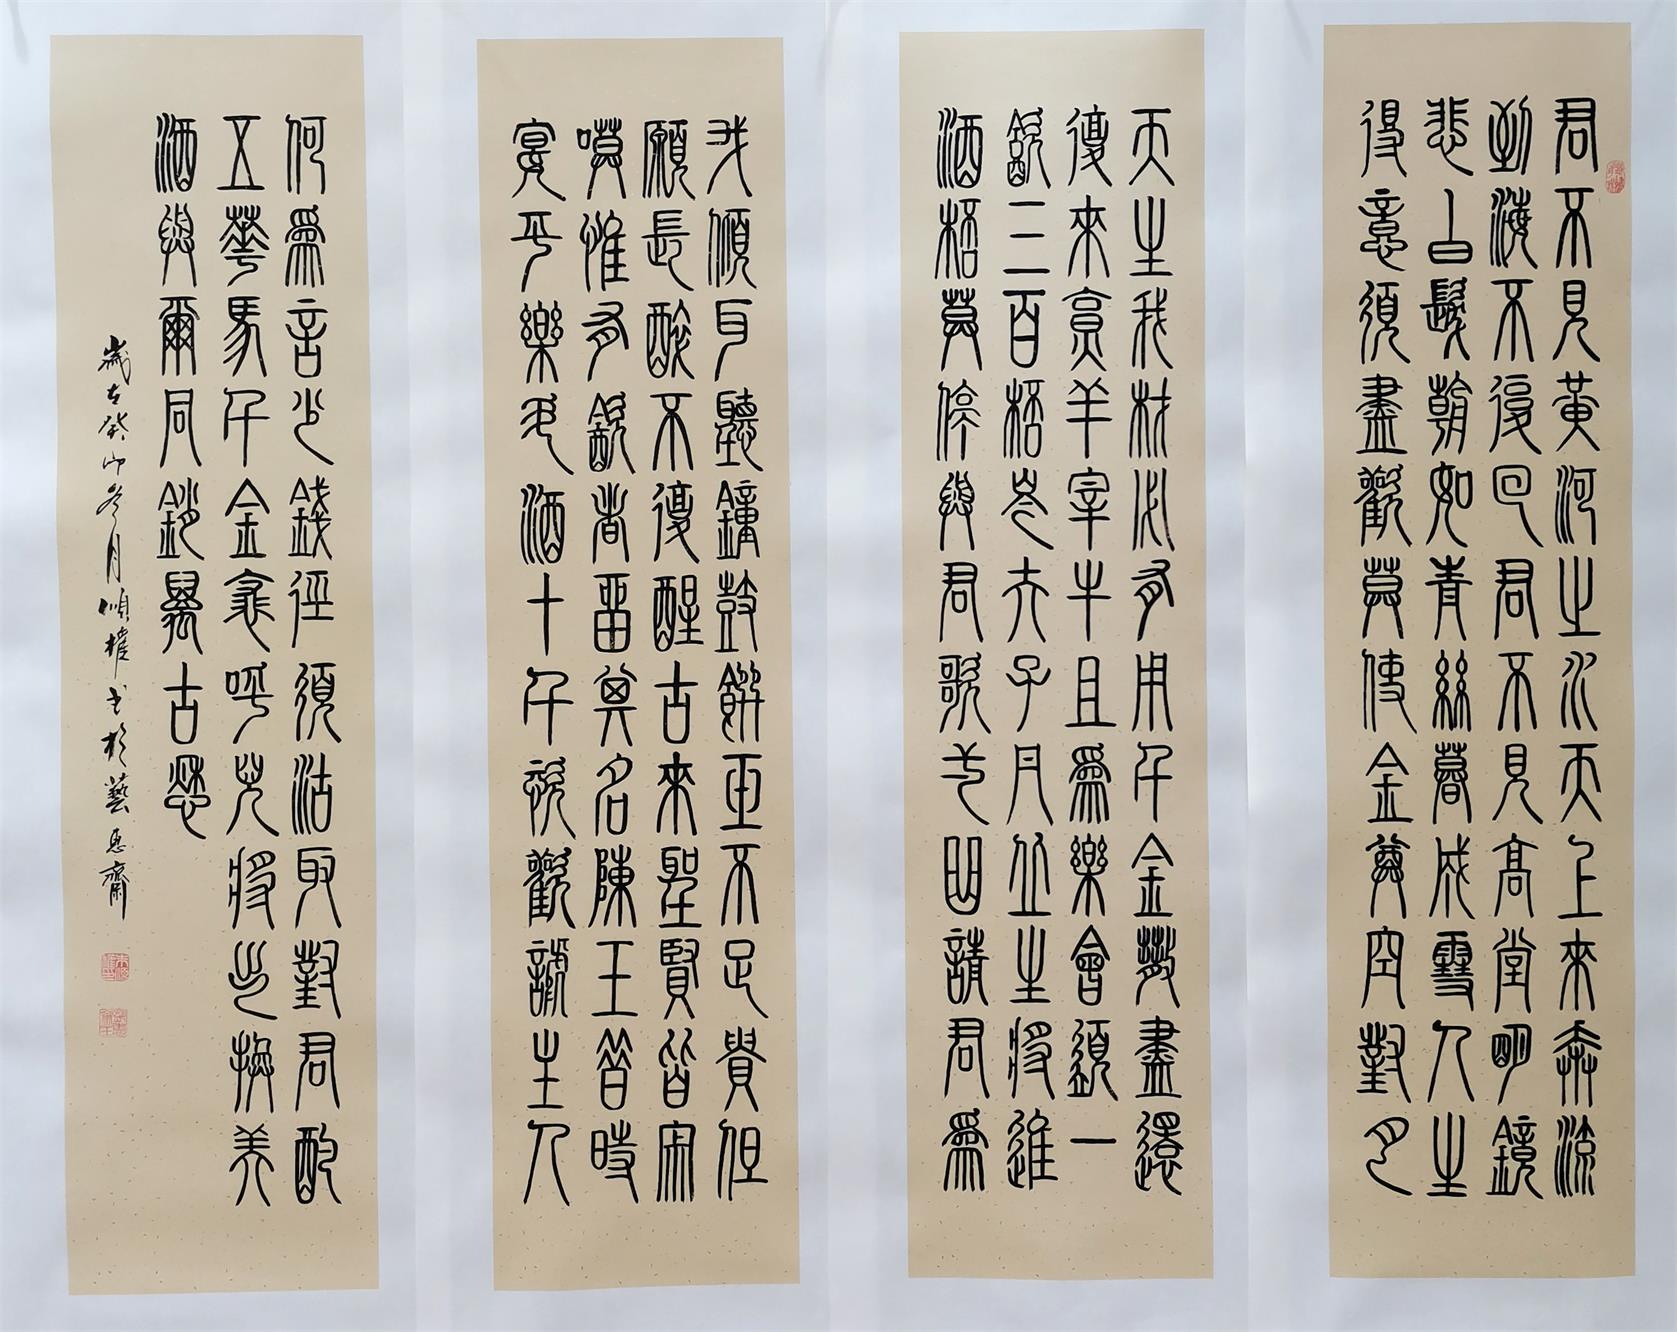 君不見黃河之水天上來奔流
到海不復回君不見高堂明鏡
悲白髮朝如青絲暮成雪人生
得意須盡歡莫使金尊空對月
天生我材必有用千金散盡還
復來烹羊宰牛且為樂會須一
飲三百杯岑夫子丹丘生將進
酒杯莫停與君歌一曲請君為
我傾耳聽鐘鼓饌玉不足貴但
願長醉不復醒古來聖賢皆寂
嗼惟有飲者留其名陳王昔時
宴平樂斗酒十千恣歡謔主人
何為言少錢徑須沽取對君酌
五華馬千金裘呼兒將出換美
酒與爾同銷萬古愁
歲在癸卯冬月順權書於藝思齋